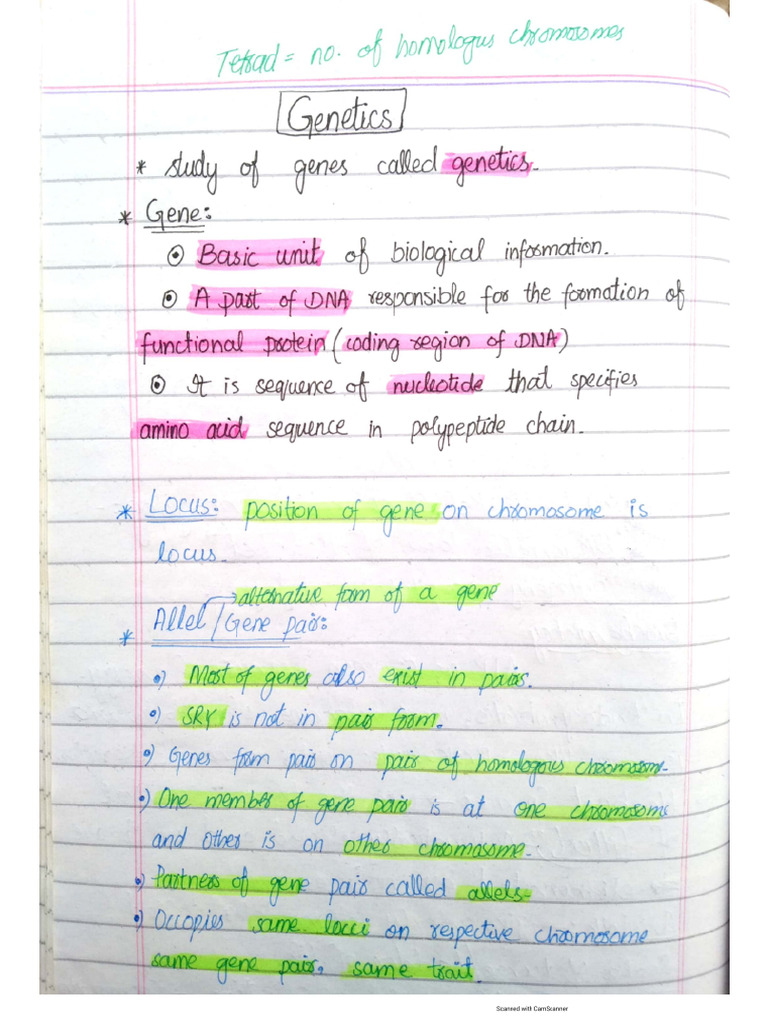 Tetrad = no. of homologus chromosomes
Genetics
* study of genes called genetics.
* Gene:
⊙ Basic unit of biological information.
⊙ A part of DNA responsible for the formation of
functional protein (coding region of DNA)
⊙ It is sequence of nucleotide that specifies
amino acid sequence in polypeptide chain.
* Locus: position of gene on chromosome is
locus.
→ alternative form of a gene
* Allel / Gene pair:
•) Most of genes also exist in pairs.
•) SRY is not in pair form.
•) Genes from pair on pair of homologous chromosome.
•) One member of gene pair is at one chromosome
and other is on other chromosome.
•) Partners of gene pair called allels.
•) Occopies same locci on respective chromosome
same gene pair, same trait.
Scanned with CamScanner